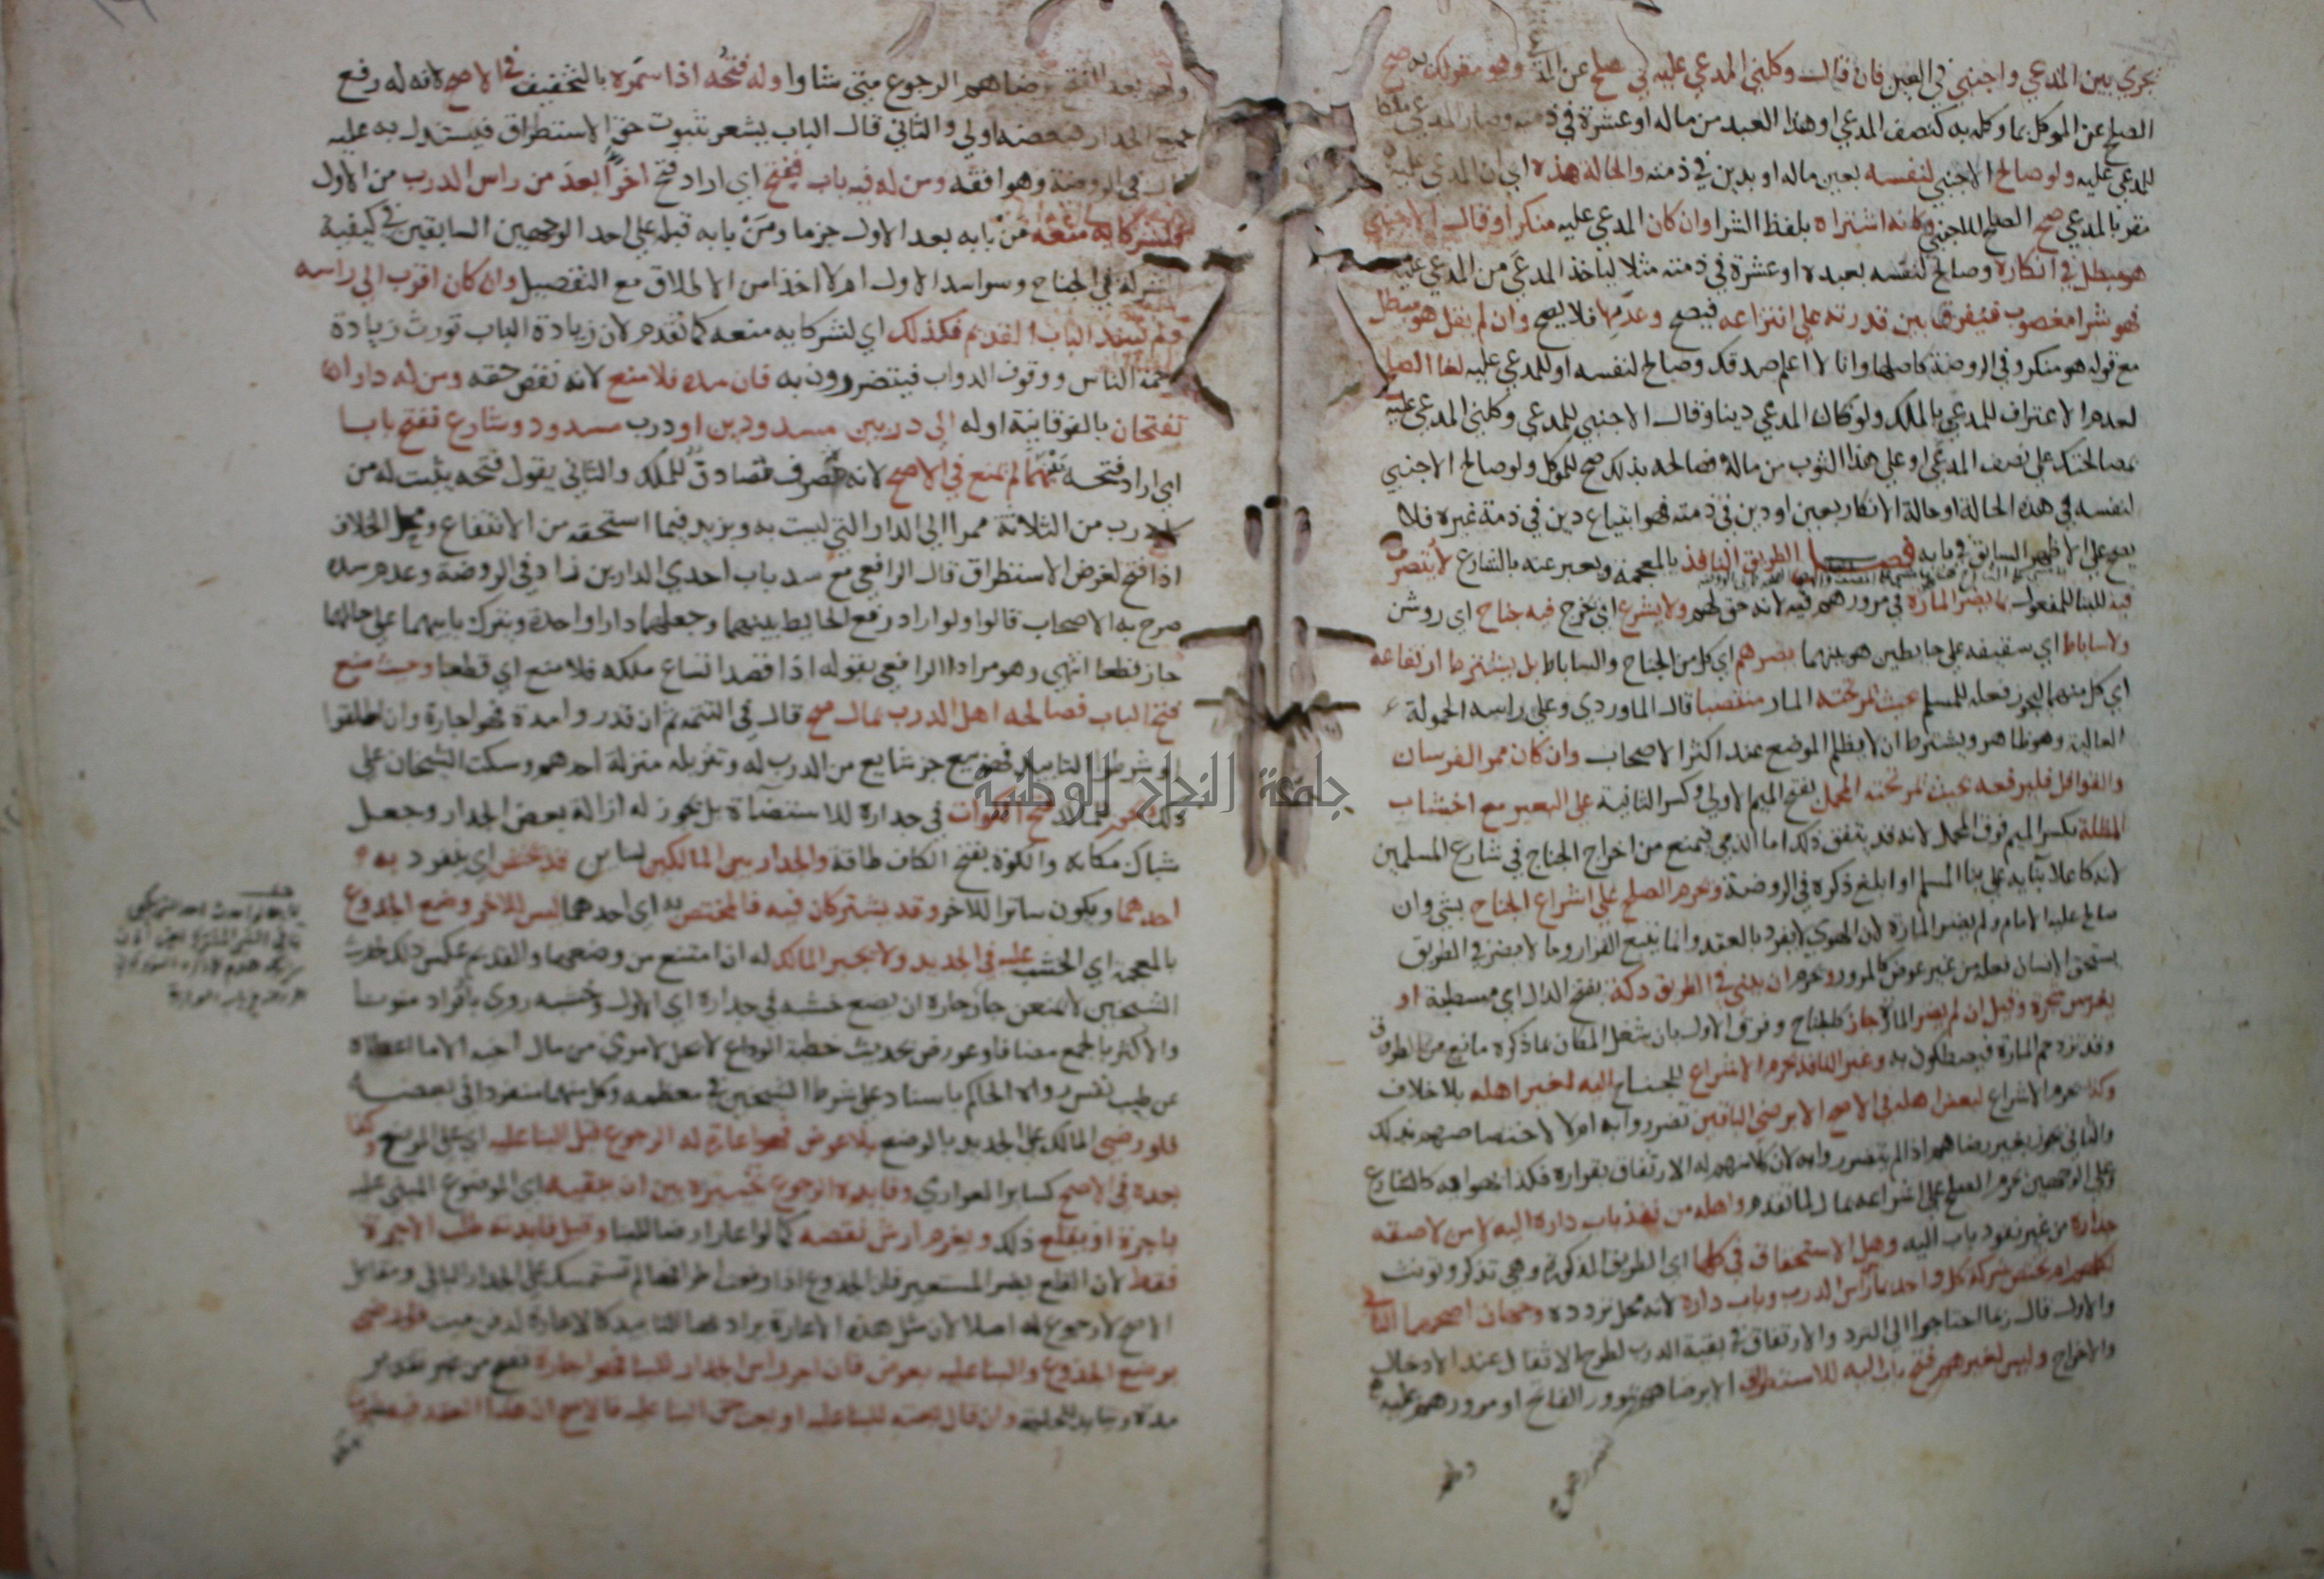 يجري بين المدعي واجنبي في العين فان قال وكلني المدعي عليه في صلح عن المدعي وهو مقر لك به صح
الصلح عن الموكل بما وكله به كنصف المدعي او هذا العبد من ماله او عشرة في ذمته وصار المدعي ملكا
للمدعي عليه ولو صالح الاجنبي لنفسه بعين ماله او بدين في ذمته والحالة هذه اي ان المدعي عليه
مقر بالمدعي صح الصلح للاجنبي وكانه اشتراه بلفظ الشرا وان كان المدعي عليه منكرا وقال الاجنبي
هو مبطل في انكاره وصالح لنفسه بعبده او عشرة في ذمته مثلا لياخذ المدعي من المدعي عليه
فهو شرا مغصوب فيفرق بين قدرته علي انتزاعه فيصح وعدمها فلا يصح وان لم يقل هو مبطل
مع قوله هو منكر وفي الروضة كاصلها وانا لا اعلم صدقك وصالح لنفسه او للمدعي عليه لغا الصلح
لعدم الاعتراف للمدعي بالملك ولو كان المدعي دينا وقال الاجنبي للمدعي وكلني المدعي عليه
بمصالحتك علي نصف المدعي او علي هذا الثوب من ماله فصالحه بذلك صح للموكل ولو صالح الاجنبي
لنفسه في هذه الحالة او حالة الانكار بعين او دين في ذمته فهو ابتياع دين في ذمة غيره فلا
يصح علي الاظهر السابق في بابه فصل الطريق النافذ بالمعجمة ويعبر عنه بالشارع لا يتصرف
فيه للبنا للمفعول بما يضر المارة في مرورهم فيه لانه حق لهم ولا يشرع اي يخرج فيه جناح اي روشن
ولا ساباط اي سقيفة علي حايطين هو بينهما يضرهم اي كل من الجناح والساباط بل يشترط ارتفاعه
اي كل منهما ليجوز فعله للمسلم بحيث يمر تحته المار منتصبا قال الماوردي وعلي راسه الحمولة
العالية وهو ظاهر ويشترط ان لا يظلم الموضع عند اكثر الاصحاب وان كان ممر الفرسان
والقوافل فليرفعه بحيث يمر تحته المحمل بفتح الميم الاولي وكسر الثانية علي البعير مع اخشاب
المظلة بكسر الميم فوق المحمل لانه قد يتفق ذلك اما الذمي فيمنع من اخراج الجناح في شارع المسلمين
لانه كاعلا بنايه علي بنا المسلم او ابلغ ذكره في الروضة ويحرم الصلح علي اشراع الجناح بشي وان
صالح عليه الامام ولم يضر المارة لان الهوي لا يفرد بالعقد وانما يتبع القرار وما لا يضر في الطريق
يستحق الانسان فعله من غير عوض كالمرور ويحرم ان يبني في الطريق دكة بفتح الدال اي مسطبة او
يغرس شجرة وقيل ان لم يضر المارة جاز كالجناح وفرق الاول بان شغل المكان بما ذكره مانع من الطروق
وقد تزدحم المارة فيصطكون به وغير النافذ يحرم الاشراع للجناح اليه لغير اهله بلا خلاف
وكذا يحرم الاشراع لبعض اهله في الاصح الا برضي الباقين تضرروا به او لا لاختصاصهم بذلك
والثاني يجوز بغير رضاهم اذا لم يتضرروا به لان كلا منهم له الارتفاق بقراره فكذا بهوايه كالشارع
وعلي الوجهين يحرم الصلح علي اشراعه بمال لما تقدم واهله من نفذ باب داره اليه لا من لاصقه
جداره من غير نفوذ باب اليه وهل الاستحقاق في كلها اي الطريق المذكورة وهي تذكر وتونث
لكلهم ام تختص شركة كل واحد بما بين راس الدرب وباب داره لانه محل تردده وجهان اصحهما الثاني
والاول قال ربما احتاجوا الي التردد والارتفاق في بقية الدرب لطرح الاثقال عند الادخال
والاخراج وليس لغيرهم فتح باب اليه للاستطراق الا برضاهم لتضررهم بمرور الفاتح او مرورهم عليه
ولهم بعد الفتح برضاهم الرجوع متي شاوا وله فتحه اذا سمره بالتخفيف في الاصح لانه له رفع
جميع الجدار فبعضه اولي والثاني قال الباب يشعر بثبوت حق الاستطراق فيستدل به عليه
قال في الروضة وهو افقه ومن له فيه باب ففتح اي اراد فتح اخر ابعد من راس الدرب من الاول
فلشركايه منعه ممن بابه بعد الاول جزما ومن بابه قبله علي احد الوجهين السابقين في كيفية
الشركة في الجناح وسوا سد الاول ام لا اخذا من الاطلاق مع التفصيل وان كان اقرب الي راسه
ولم يسد الباب القديم فكذلك اي لشركايه منعه كما تقدم لان زيادة الباب تورث زيادة
زحمة الناس ووقوف الدواب فيتضررون به فان سده فلا منع لانه نقص حقه ومن له داران
تفتحان بالفوقانية اوله الي دربين مسدودين او درب مسدود وشارع ففتح بابا
اي اراد فتحه بينهما لم يمنع في الاصح لانه تصرف مصادف للملك والثاني يقول فتحه يثبت له من
الدرب من الثلاثة ممرا الي الدار التي ليست به ويزيد فيما استحقه من الانتفاع ومحل الخلاف
اذا فتح لغرض الاستطراق قال الرافعي مع سد باب احدي الدارين زاد في الروضة وعدم سده
صرح به الاصحاب قالوا ولو اراد رفع الحايط بينهما وجعلهما دارا واحدة ويترك بابيهما علي حالهما
جاز قطعا انتهي وهو مراد الرافعي بقوله اذا قصد اتساع ملكه فلا منع اي قطعا وحيث منع
فتح الباب فصالحه اهل الدرب بمال صح قال في التتمة ثم ان قدروا مدة فهو اجارة وان اطلقوا
او شرطوا التابيد فهو بيع جز شايع من الدرب له وتنزيله منزلة احدهم وسكت الشيخان علي
ذلك ويجوز للمالك فتح الكوات في جداره للاستضاة بل يجوز له ازالة بعض الجدار وجعل
شباك مكانه والكوة بفتح الكاف طاقة والجدار بين المالكين لبناين قد يختص اي ينفرد به
احدهما ويكون ساترا للاخر وقد يشتركان فيه فالمختص به اي احدهما ليس للاخر وضع الجذوع
بالمعجمة اي الخشب عليه في الجديد ولا يجبر المالك له ان امتنع من وضعها والقديم عكس ذلك لحديث
الشيخين لا يمنعن جار جاره ان يضع خشبه في جداره اي الاول وخشبه روي بافراد منونا
والاكثر بالجمع مضافا وعورض بحديث خطبة الوداع لا يحل لامري من مال اخيه الا ما اعطاه
عن طيب نفس رواه الحاكم باسناد علي شرط الشيخين في معظمه وكل منهما منفردا في بعضه
فلو رضي المالك علي الجديد بالوضع بلا عوض فهو اعارة له الرجوع قبل البنا عليه اي علي الموضع وكذا
بعده في الاصح كساير العواري وفايدة الرجوع تخييره بين ان يبقيه اي الموضوع المبني عليه
باجرة او يقلع ذلك ويغرم ارش نقصه كما لو اعار ارضا للبنا وقيل فايدته طلب الاجرة
فقط لان القلع يضر المستعير فان الجذوع اذا رفعت اطرافها لم تستمسك علي الجدار الباقي ومقابل
الاصح لا رجوع له اصلا لان مثل هذه الاعارة يراد بها التابيد كالاعارة لدفن ميت فلو رضي
بوضع الجذوع والبنا عليه بعوض فان اجر راس الجدار للبنا فهو اجارة تصح من غير تقدير
مدة وتتابد للحاجة وان قال بعته للبنا عليه او بعت حق البنا عليه فالاصح ان هذا العقد فيه شوب
جامعة النجاح الوطنية